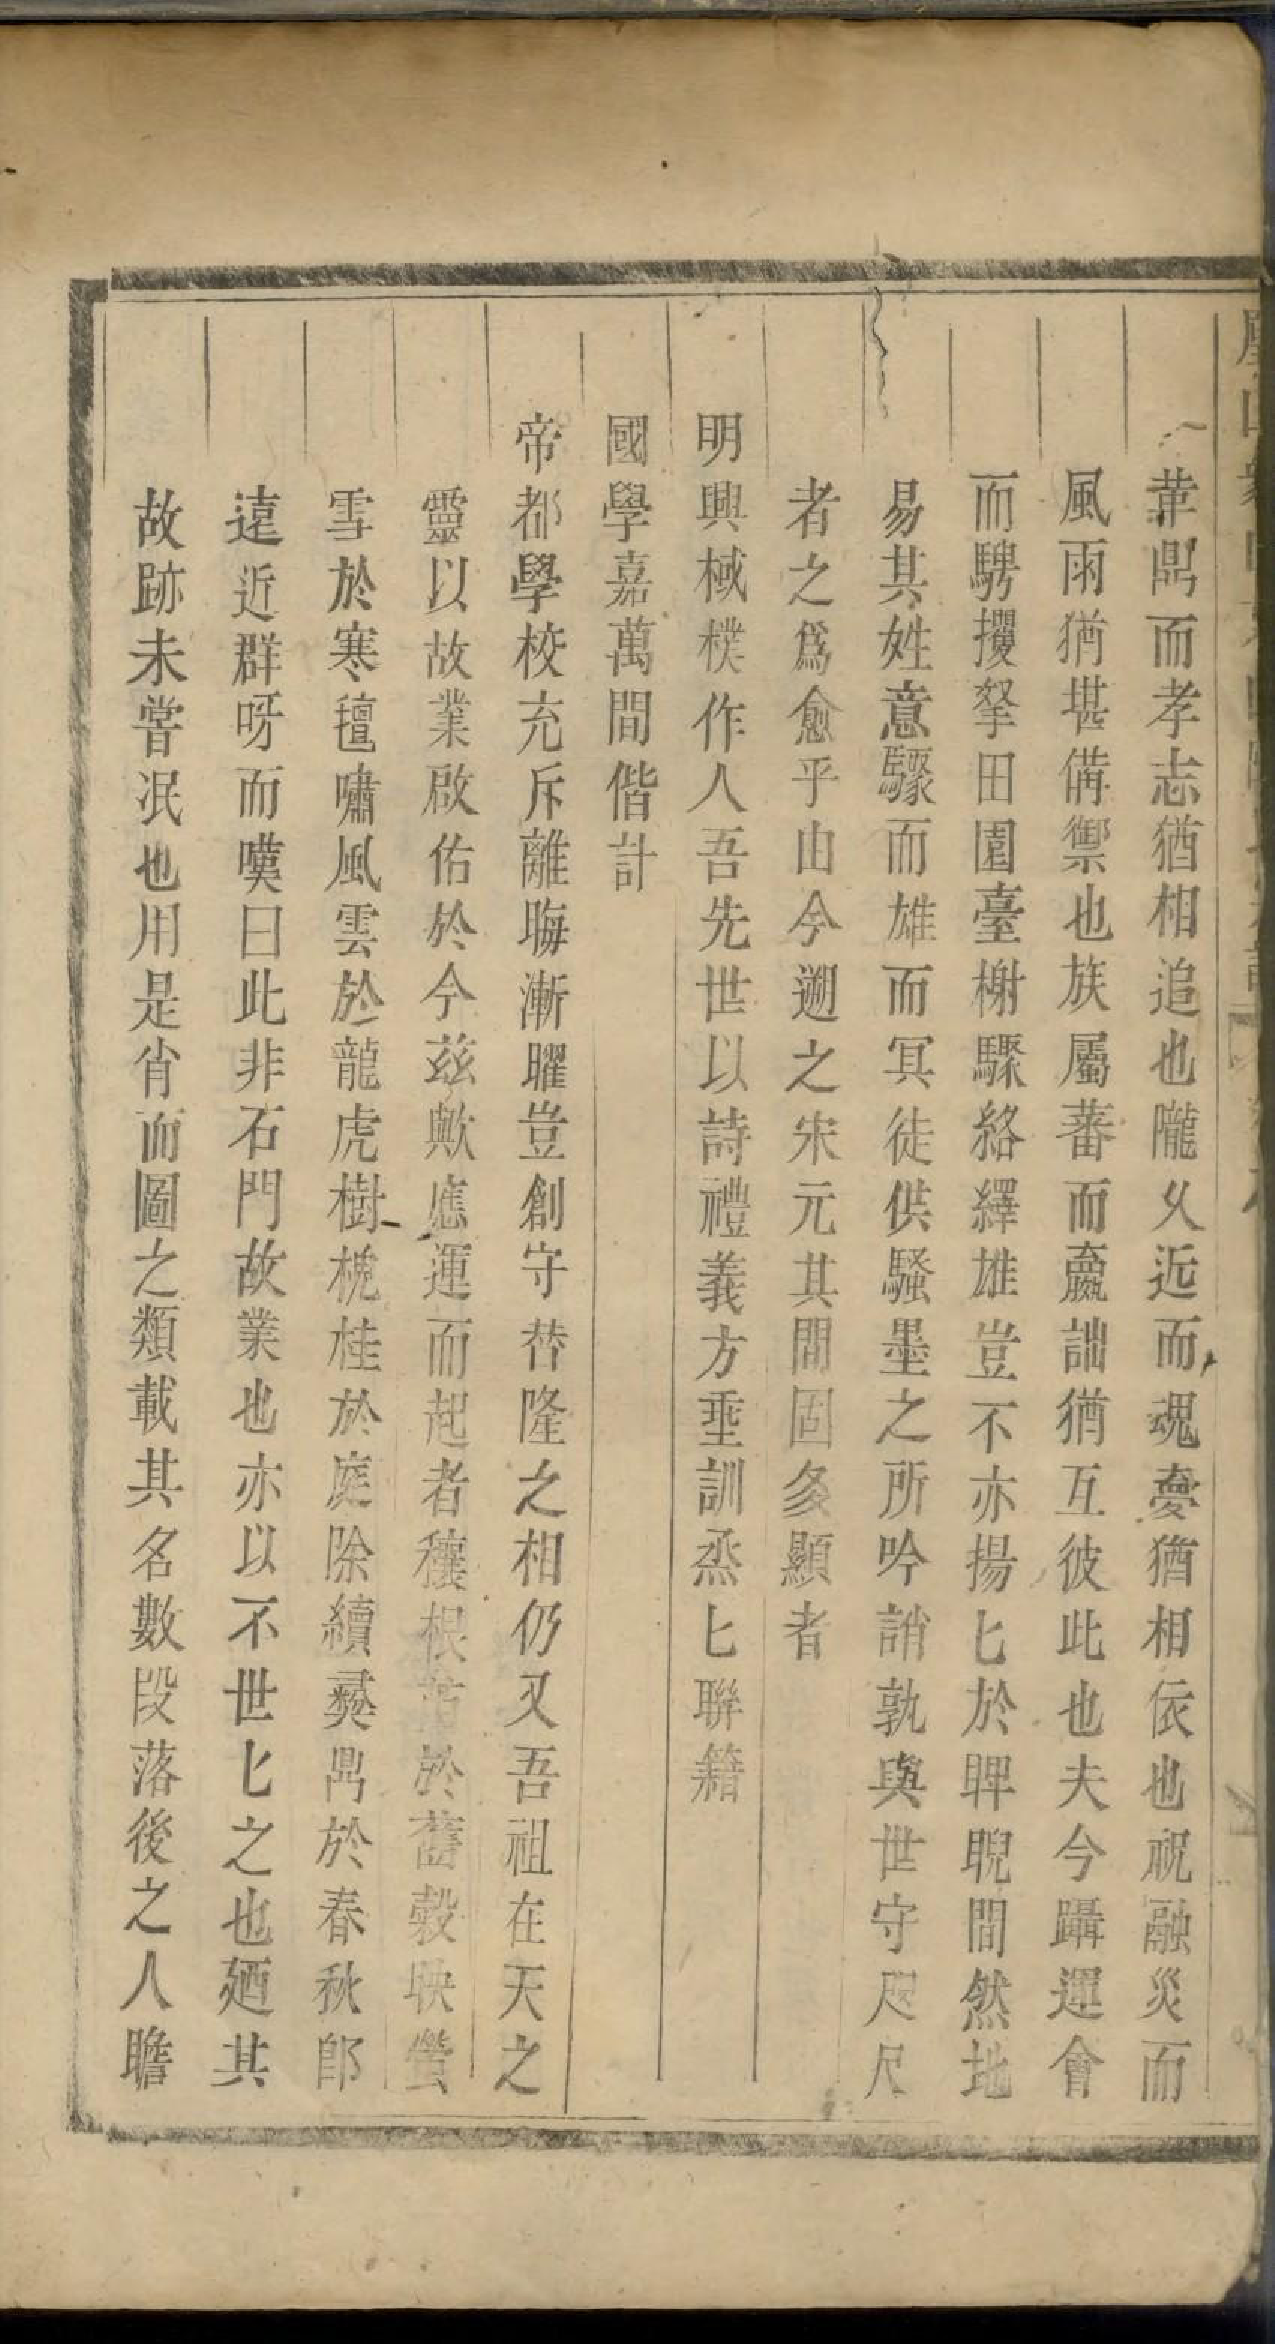 葦鼎而孝志猶相追也隴乆近而魂夢猶相依也祝融災而
風雨猶堪備禦也族屬蕃而嬴詘猶互彼此也夫今躡運會
而騁攫拏田園臺榭驟絡繹雄豈不亦揚匕於睥睨間然地
易其姓意驟而雄而冥徒供騷墨之所吟誚孰與世守咫尺
者之爲愈乎由今遡之宋元其間固多顯者
明興棫樸作人吾先世以詩禮義方垂訓烝匕聯籍
國學嘉萬間偕計
帝都學校充斥離晦漸曜豈創守替隆之相仍又吾祖在天之
靈以故業啟佑於今茲歟應運而起者穰根於舊穀映螢
雪於寒氊嘯風雲於龍虎樹槐桂於庭除續彞鼎於春秋郎
遠近群呀而嘆曰此非石門故業也亦以不世匕之也廼其
故跡未嘗泯也用是肖而圖之類載其名數段落後之人瞻